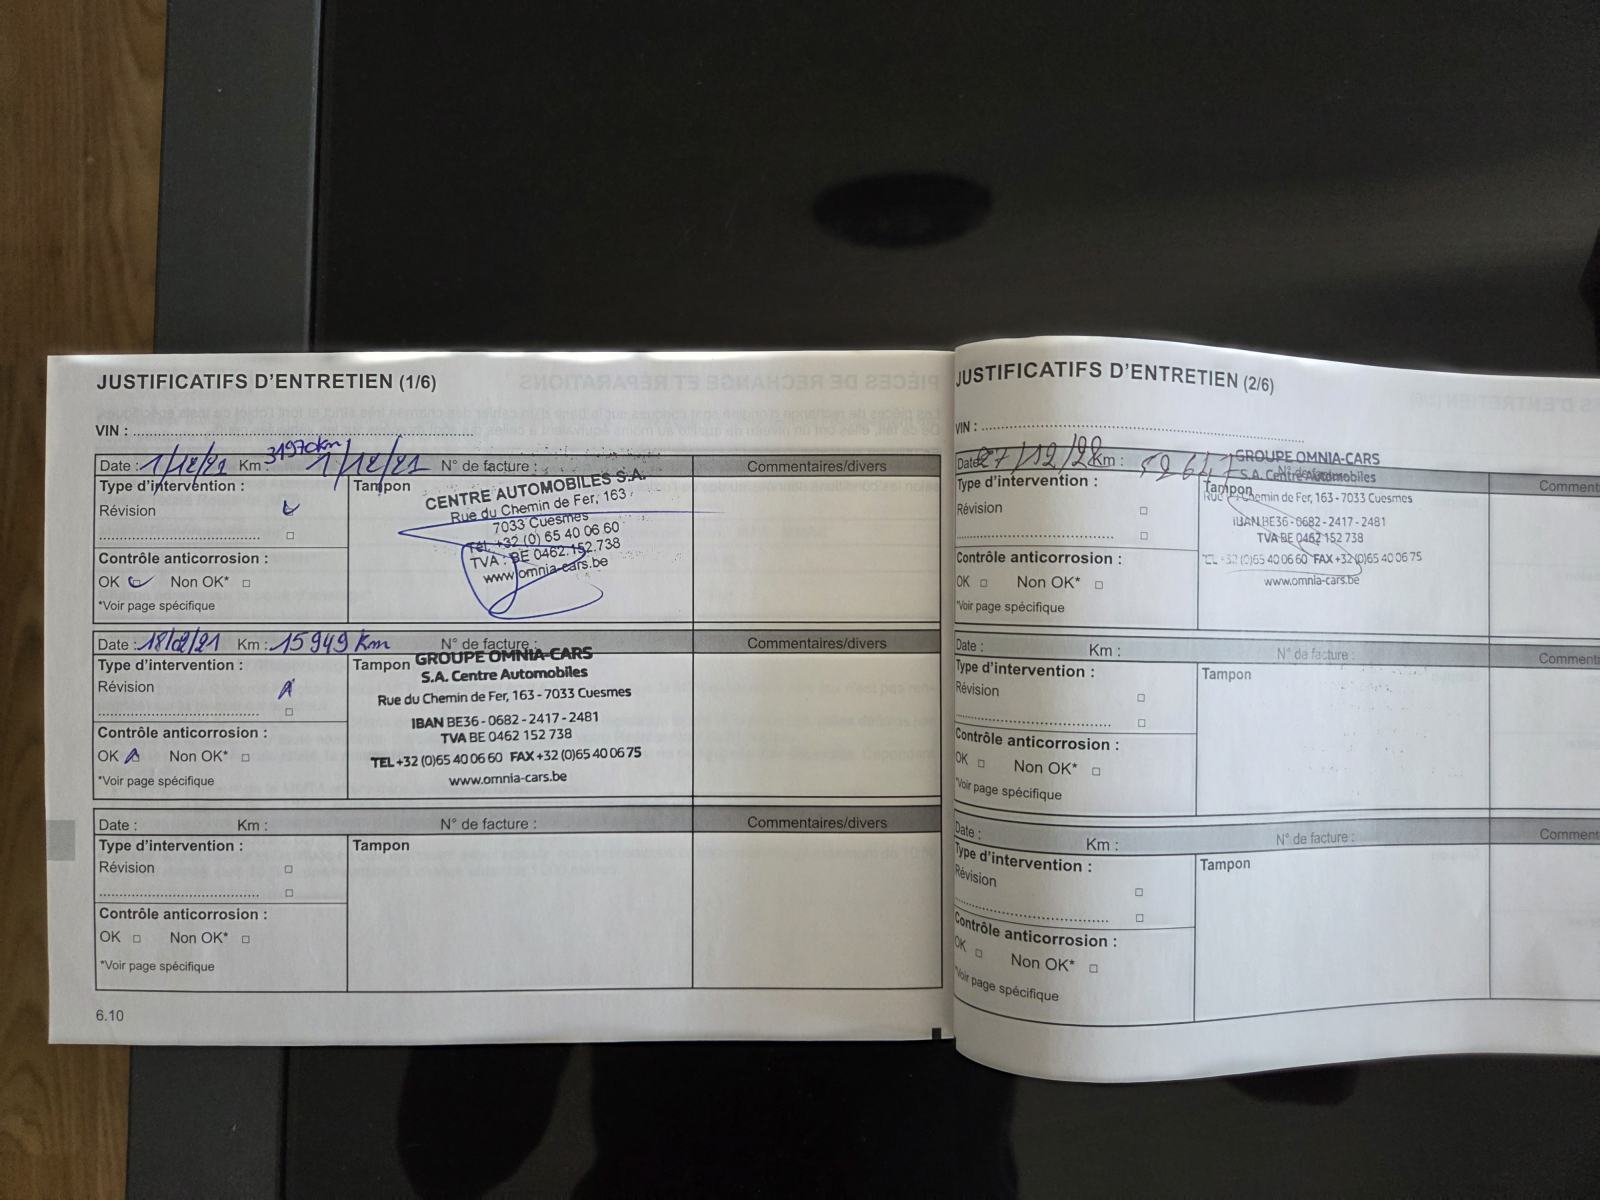 JUSTIFICATIFS D'ENTRETIEN (1/6)
VIN :
Date : 1/12/21 Km : 31970km 1/12/21 N° de facture : Commentaires/divers
Type d'intervention : Tampon
Révision
CENTRE AUTOMOBILES S.A.
Rue du Chemin de Fer, 163
7033 Cuesmes
Tél. +32 (0) 65 40 06 60
TVA : BE 0462.152.738
www.omnia-cars.be
Contrôle anticorrosion :
OK Non OK*
*Voir page spécifique
Date : Km : 15949 Km N° de facture : Commentaires/divers
Type d'intervention : Tampon
Révision
GROUPE OMNIA-CARS
S.A. Centre Automobiles
Rue du Chemin de Fer, 163 - 7033 Cuesmes
IBAN BE36 - 0682 - 2417 - 2481
TVA BE 0462 152 738
TEL +32 (0)65 40 06 60 FAX +32 (0)65 40 06 75
www.omnia-cars.be
Contrôle anticorrosion :
OK Non OK*
*Voir page spécifique
Date : Km : N° de facture : Commentaires/divers
Type d'intervention : Tampon
Révision
Contrôle anticorrosion :
OK Non OK*
*Voir page spécifique
6.10
JUSTIFICATIFS D'ENTRETIEN (2/6)
VIN :
Date 27/12/22 Km : 52647 N° de facture
Type d'intervention : Tampon Comment
Révision
GROUPE OMNIA-CARS
S.A. Centre Automobiles
Rue Chemin de Fer, 163 - 7033 Cuesmes
IBAN BE36 - 0682 - 2417 - 2481
TVA BE 0462 152 738
TEL +32 (0)65 40 06 60 FAX +32 (0)65 40 06 75
www.omnia-cars.be
Contrôle anticorrosion :
OK Non OK*
*Voir page spécifique
Date : Km : N° de facture : Comment
Type d'intervention : Tampon
Révision
Contrôle anticorrosion :
OK Non OK*
*Voir page spécifique
Date : Km : N° de facture : Comment
Type d'intervention : Tampon
Révision
Contrôle anticorrosion :
OK Non OK*
*Voir page spécifique